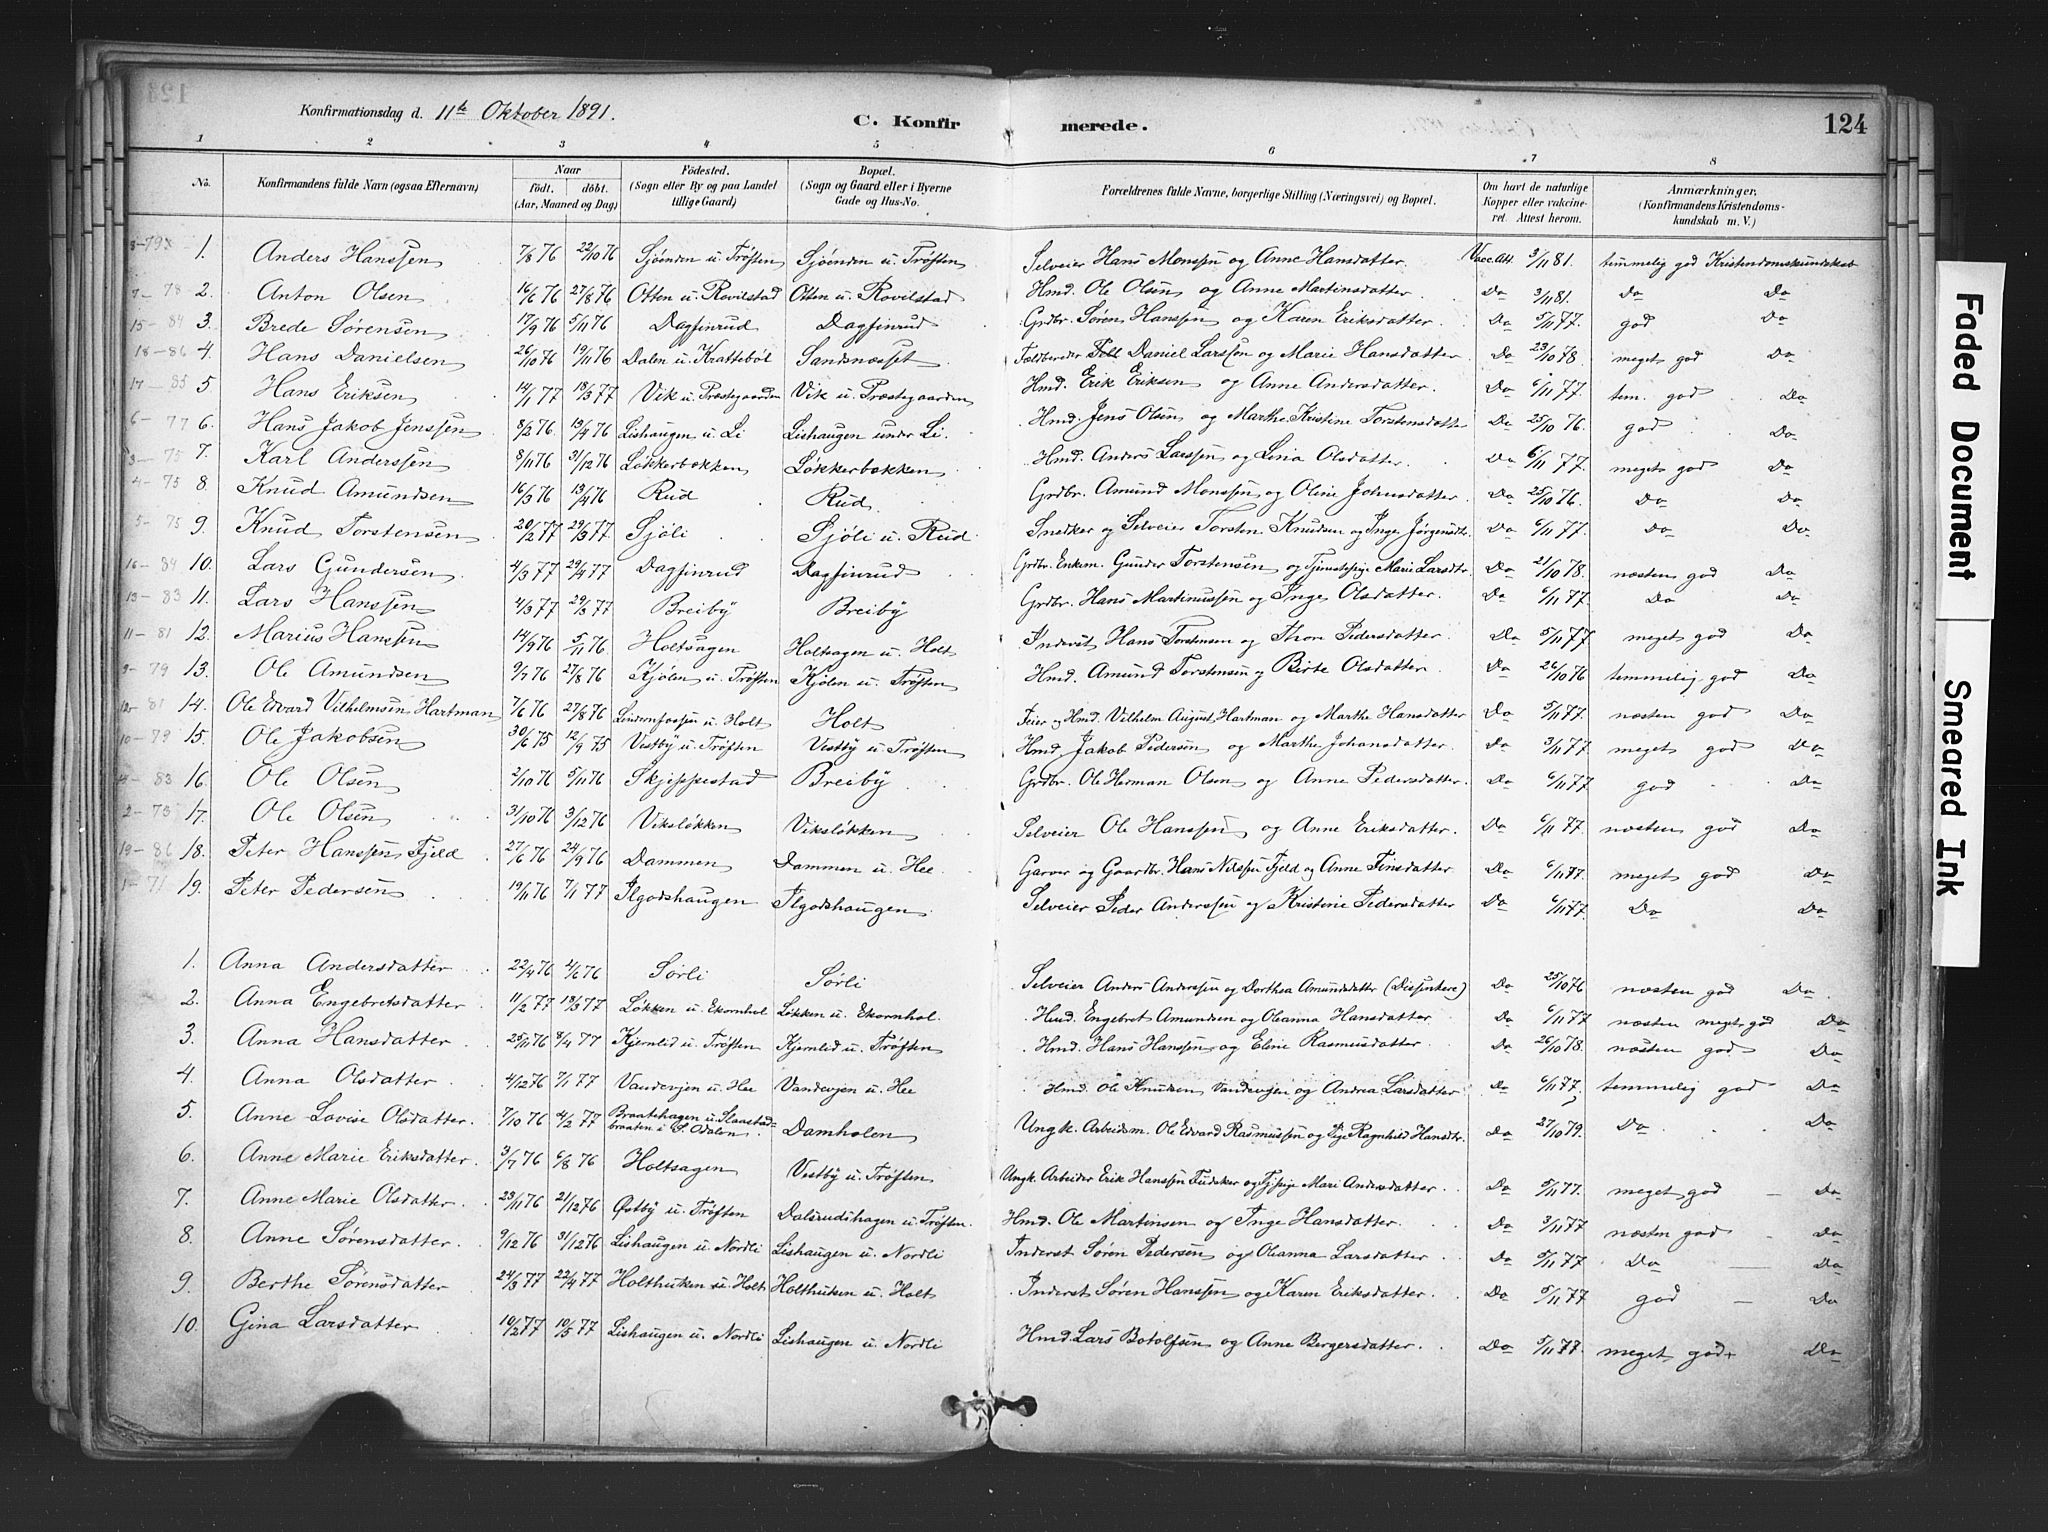 Konfirmationsdag d. 11te Oktober 1891.
C. Konfirmerede.
124
1 2 3 4 5 6 7 8
No. Konfirmandens fulde Navn (ogsaa Efternavn) Naar født. døbt. (Aar, Maaned og Dag) Födested. (Sogn eller By og paa Landet tillige Gaard) Bopæl. (Sogn og Gaard eller i Byerne Gade og Hus-No. Forældrenes fulde Navne, borgerlige Stilling (Næringsvei) og Bopæl. Om havt de naturlige Kopper eller vakcineret. Attest herom. Anmærkninger, (Konfirmandens Kristendomskundskab m. V.)
1. Anders Hanssen 7/8 76 22/10 76 Sjøenden u. Trøften Sjøenden u. Trøften Selveier Hans Monsen og Anne Hansdatter Vacc. Att. 3/11 81. temmelig god Kristendomskundskab
7-78 2. Anton Olsen 16/6 76 27/8 76 Otten u. Rovilstad Otten u. Rovilstad Hmd. Ole Olsen og Anne Martinsdatter. Do 3/11 81. Do Do
15-84 3. Brede Sørensen 17/9 76 5/11 76 Dagfinrud Dagfinrud Grdbr. Søren Hanssen og Karen Eriksdatter. Do 5/11 77. god Do
18-86 4. Hans Danielsen 26/10 76 19/11 76 Dalen u. Krattebøl Sandnæsset Daniel Larssen og Marie Hansdatter Do 23/10 78. meget god Do
17-85 5. Hans Eriksen 14/1 77 18/3 77 Vik u. Præstegaarden Vik u. Præstegaarden Hmd. Erik Eriksen og Anne Andersdatter. Do 6/11 77. tem. god Do
6-77 6. Hans Jakob Jenssen 8/2 76 19/4 76 Lishaugen u. Li Lishaugen under Li. Hmd. Jens Olsen og Marthe Kristine Torstensdatter Do 25/10 76. god Do
3-75 7. Karl Anderssen 8/11 76 31/12 76 Løkkerbakken Løkkerbakken Hmd. Anders Larssen og Lina Olsdatter. Do 6/11 77. meget god Do
4-75 8. Knud Amundsen 16/3 76 13/4 76 Rud Rud. Grdbr. Amund Monssen og Oline Johnsdatter. Do 25/10 76. Do Do
5-75 9. Knud Torstensen 20/2 77 29/3 77 Sjøli Sjøli u. Rud Snedker og Selveier Torsten Knudsen og Inge Jørgensdtr. Do 6/11 77. Do Do
16-84 10. Lars Gundersen 4/3 77 29/4 77 Dagfinrud Dagfinrud Grdbr. Enkm. Gunder Torstensen og Tjenestepige Marie Larsdtr. Do 21/10 78. næsten god Do
13-83 11. Lars Hanssen 4/3 77 29/3 77 Breiby Breiby Grdbr. Hans Martinussen og Inge Olsdatter. Do 6/11 77. Do Do
11-81 12. Marius Hanssen 14/9 76 5/11 76 Holtsagen Holtsagen u. Holt Inderst Hans Torstensen og Thore Pedersdatter Do 5/11 77. meget god Do
9-79 13. Ole Amundsen 9/7 76 27/8 76 Kjølen u. Trøften Kjølen u. Trøften Hmd. Amund Torstensen og Birte Olsdatter. Do 26/10 76 temmelig god Do
14. Ole Edvard Vilhelmsen Hartman 7/6 76 27/8 76 Lindernfossen u. Holt Holt Feier og Hmd. Vilhelm August Hartman og Marthe Hansdatter Do 5/11 77. næsten god Do
10-79 15. Ole Jakobsen 30/6 75 12/9 75 Vestby u. Trøften Vestby u. Trøften Hmd. Jakob Pedersen og Marthe Johansdatter. Do 3/11 77. meget god Do
83 16. Ole Olsen 2/10 76 5/11 76 Skjeppestad Breiby Grdbr. Ole Herman Olsen og Anne Pedersdatter. Do 6/11 77 god Do
2-73 17. Ole Olsen 31/10 76 3/12 76 Viksløkken Viksløkken Selveier Ole Hanssen og Anne Eriksdatter. Do 6/11 77. næsten god Do
19-86 18. Peter Hanssen Fjeld 27/6 76 24/9 76 Dammen Dammen u. Hee Garver og Gaardbr. Hans Nilssen Fjeld og Anne Finsdatter Do 6/11 77. meget god Do
1-71 19. Peter Pedersen 19/11 76 7/1 77 Ilgodshaugen Ilgodshaugen Selveier Peder Anderssen og Kristine Pedersdatter Do 6/11 77. Do Do
1. Anna Andersdatter 22/4 76 4/6 76 Sørli Sørli Selveier Anders Anderssen og Dorthea Amundsdatter (Dissentere) Do 25/10 76 næsten god Do
2. Anna Engebretsdatter 11/2 77 18/3 77 Løkken u. Ekornhol Løkken u. Ekornhol. Hmd. Engebret Amundsen og Oleanna Hansdatter Do 6/11 77 næsten meget god Do
3. Anna Hansdatter 25/11 76 8/4 77 Kjernlid u. Trøften Kjernlid u. Trøften Hmd. Hans Hanssen og Eline Rasmusdatter Do 26/10 78. næsten god Do
4. Anna Olsdatter 4/12 76 7/1 77 Vandevjen u. Hee Vandevjen u. Hee Hmd. Ole Knudsen Vandevjen og Andrea Larsdatter Do 6/11 77. temmelig god Do
5. Anne Lovise Olsdatter 7/10 76 4/2 77 Braatehagen u. Slaastadbraaten i S. Odalen Damholen Ungk. Arbeidsm. Ole Edvard Rasmussen og Pige Ragnhild Hansdtr. Do 27/10 79. Do Do
6. Anne Marie Eriksdatter 3/7 76 6/8 76 Holtsagen Vestby u. Trøften Ungk. Arbeider Erik Hanssen og Tjpige Mari Andersdatter Do 5/11 77. meget god Do
7. Anne Marie Olsdatter 23/11 76 21/12 76 Østby u. Trøften Dalsrudshagen u. Trøften. Hmd. Ole Martinsen og Inge Hansdatter. Do 3/11 77 næsten god Do
8. Anne Sørensdatter 9/12 76 31/12 76 Lishaugen u. Nordli Lishaugen u. Nordli Inderst Søren Pedersen og Oleanna Larsdatter Do 5/11 77 Do Do
9. Berthe Sørensdatter 24/3 77 22/4 77 Holthuken u. Holt Holthuken u. Holt Inderst Søren Hanssen og Karen Eriksdatter. Do 5/11 77 god Do
10. Gina Larsdatter 10/2 77 10/5 77 Lishaugen u. Nordli Lishaugen u. Nordli Hmd. Lars Botolfsen og Anne Bergersdatter. Do 5/11 77. meget god Do
Faded Document
Smeared Ink